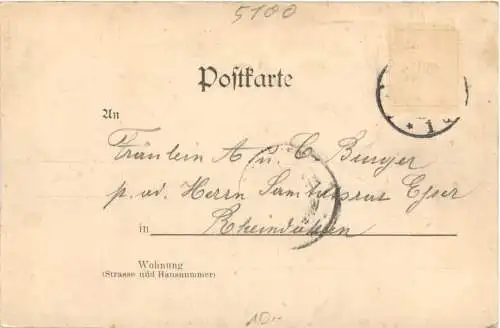 5100
Postkarte
An
Fräulein A u. C Burger
p. ad. Herrn Esser
in Rheindahlen
Wohnung
(Strasse und Hausnummer)
10.-